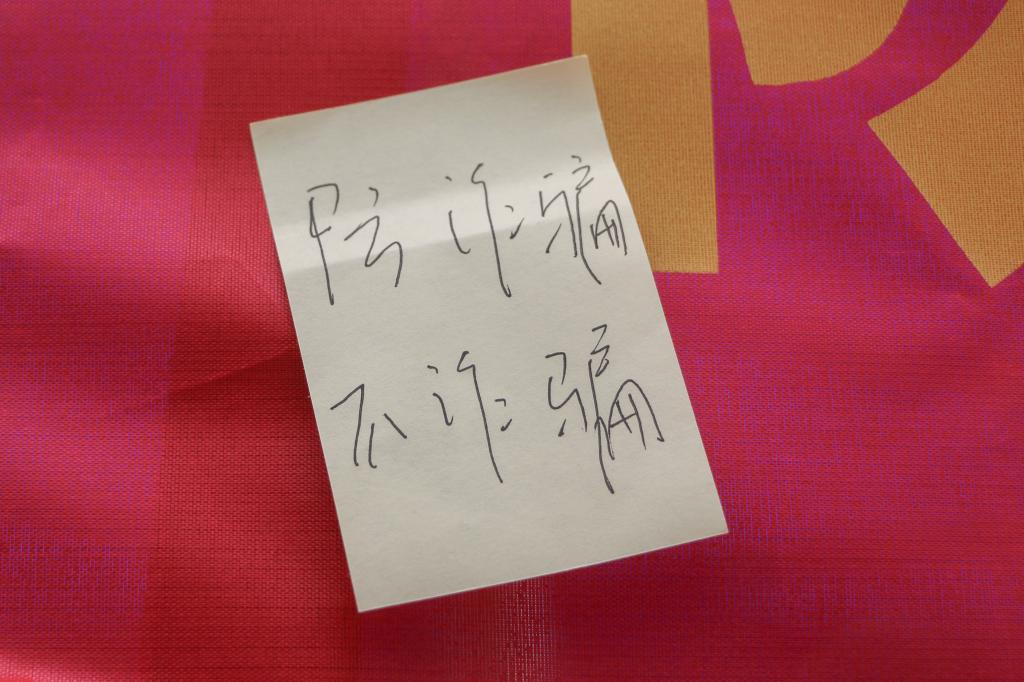 防诈骗
不诈骗